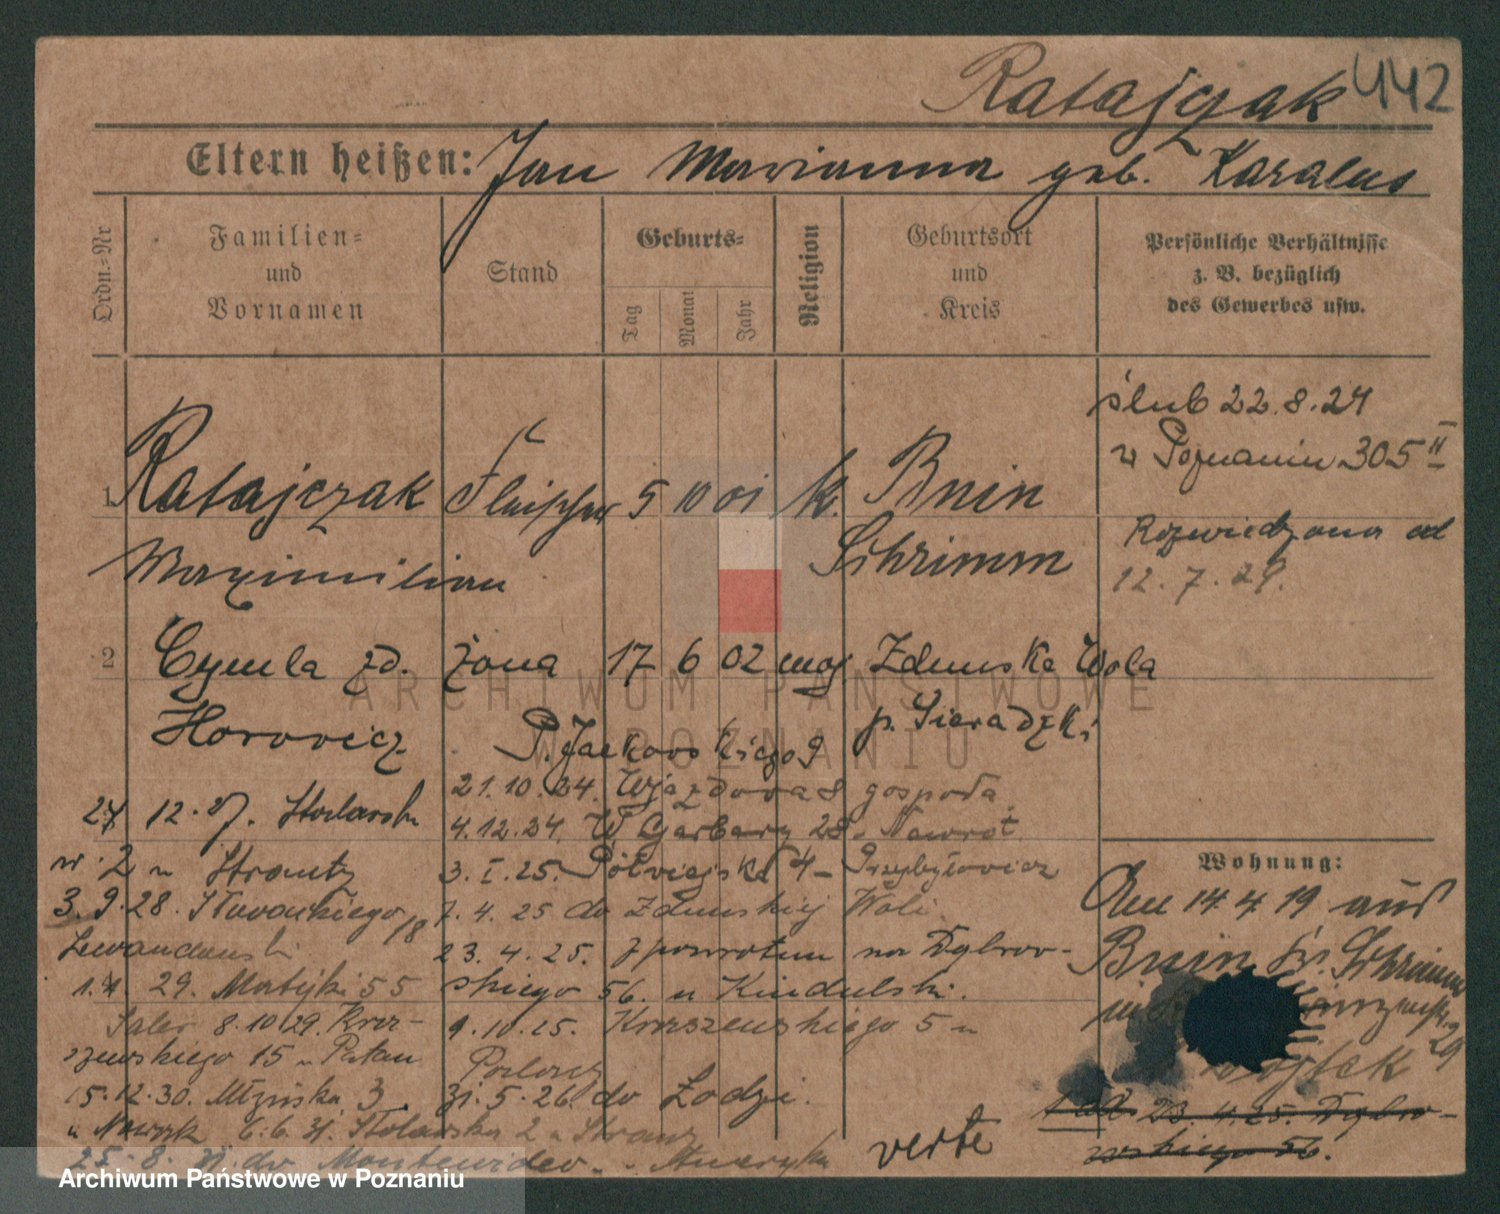 Ratajczak 442
Eltern heißen: Jan Marianna geb. Karalus
Ordn.-Nr
Familien-
und
Vornamen
Stand
Geburts-
Tag
Monat
Jahr
Religion
Geburtsort
und
Kreis
Persönliche Verhältnisse
z. B. bezüglich
des Gewerbes usw.
ślub 22.8.24
w Poznaniu 305 II
1 Ratajczak Fleischer 5 10 01 k. Bnin
Maximilian Schrimm
Rozwiedziona od
12.7.29.
2 Cymla zd. żona 17 6 02 moj Zdunska Wola
Horovicz
p. Sieradzki
P. Jackowskiego 9
21.10.24. Wjazdowa 8 gospoda
4.12.24. W Garbary 28 Nawrot
3.I.25. Półwiejska 4 - Przybyłowicz
7.4.25 do Zdunskiej Woli
23.4.25. z powrotem na Dąbrow-
skiego 56. u Kindulski.
9.10.25. Kraszewskiego 5 u
31.5.26. do Łodzi.
verte
27 12. 27. Stolarska
nr. 2 u Strauty
3.9.28. Słowackiego 18
Lewandowski
1.4. 29. Matejki 55
Saler 8.10.29. Kra-
szewskiego 15 u Patan
15.12.30. Młyńska 3
u Nowak 6.6.31. Stolarska 2 u
25.8. do Montevideo - Ameryka
Wohnung:
Am 14 4 19 aus
Bnin Kr. Schrimm
23.4.25. Dąbro-
wskiego 56.
ARCHIWUM PAŃSTWOWE
W POZNANIU
Archiwum Państwowe w Poznaniu